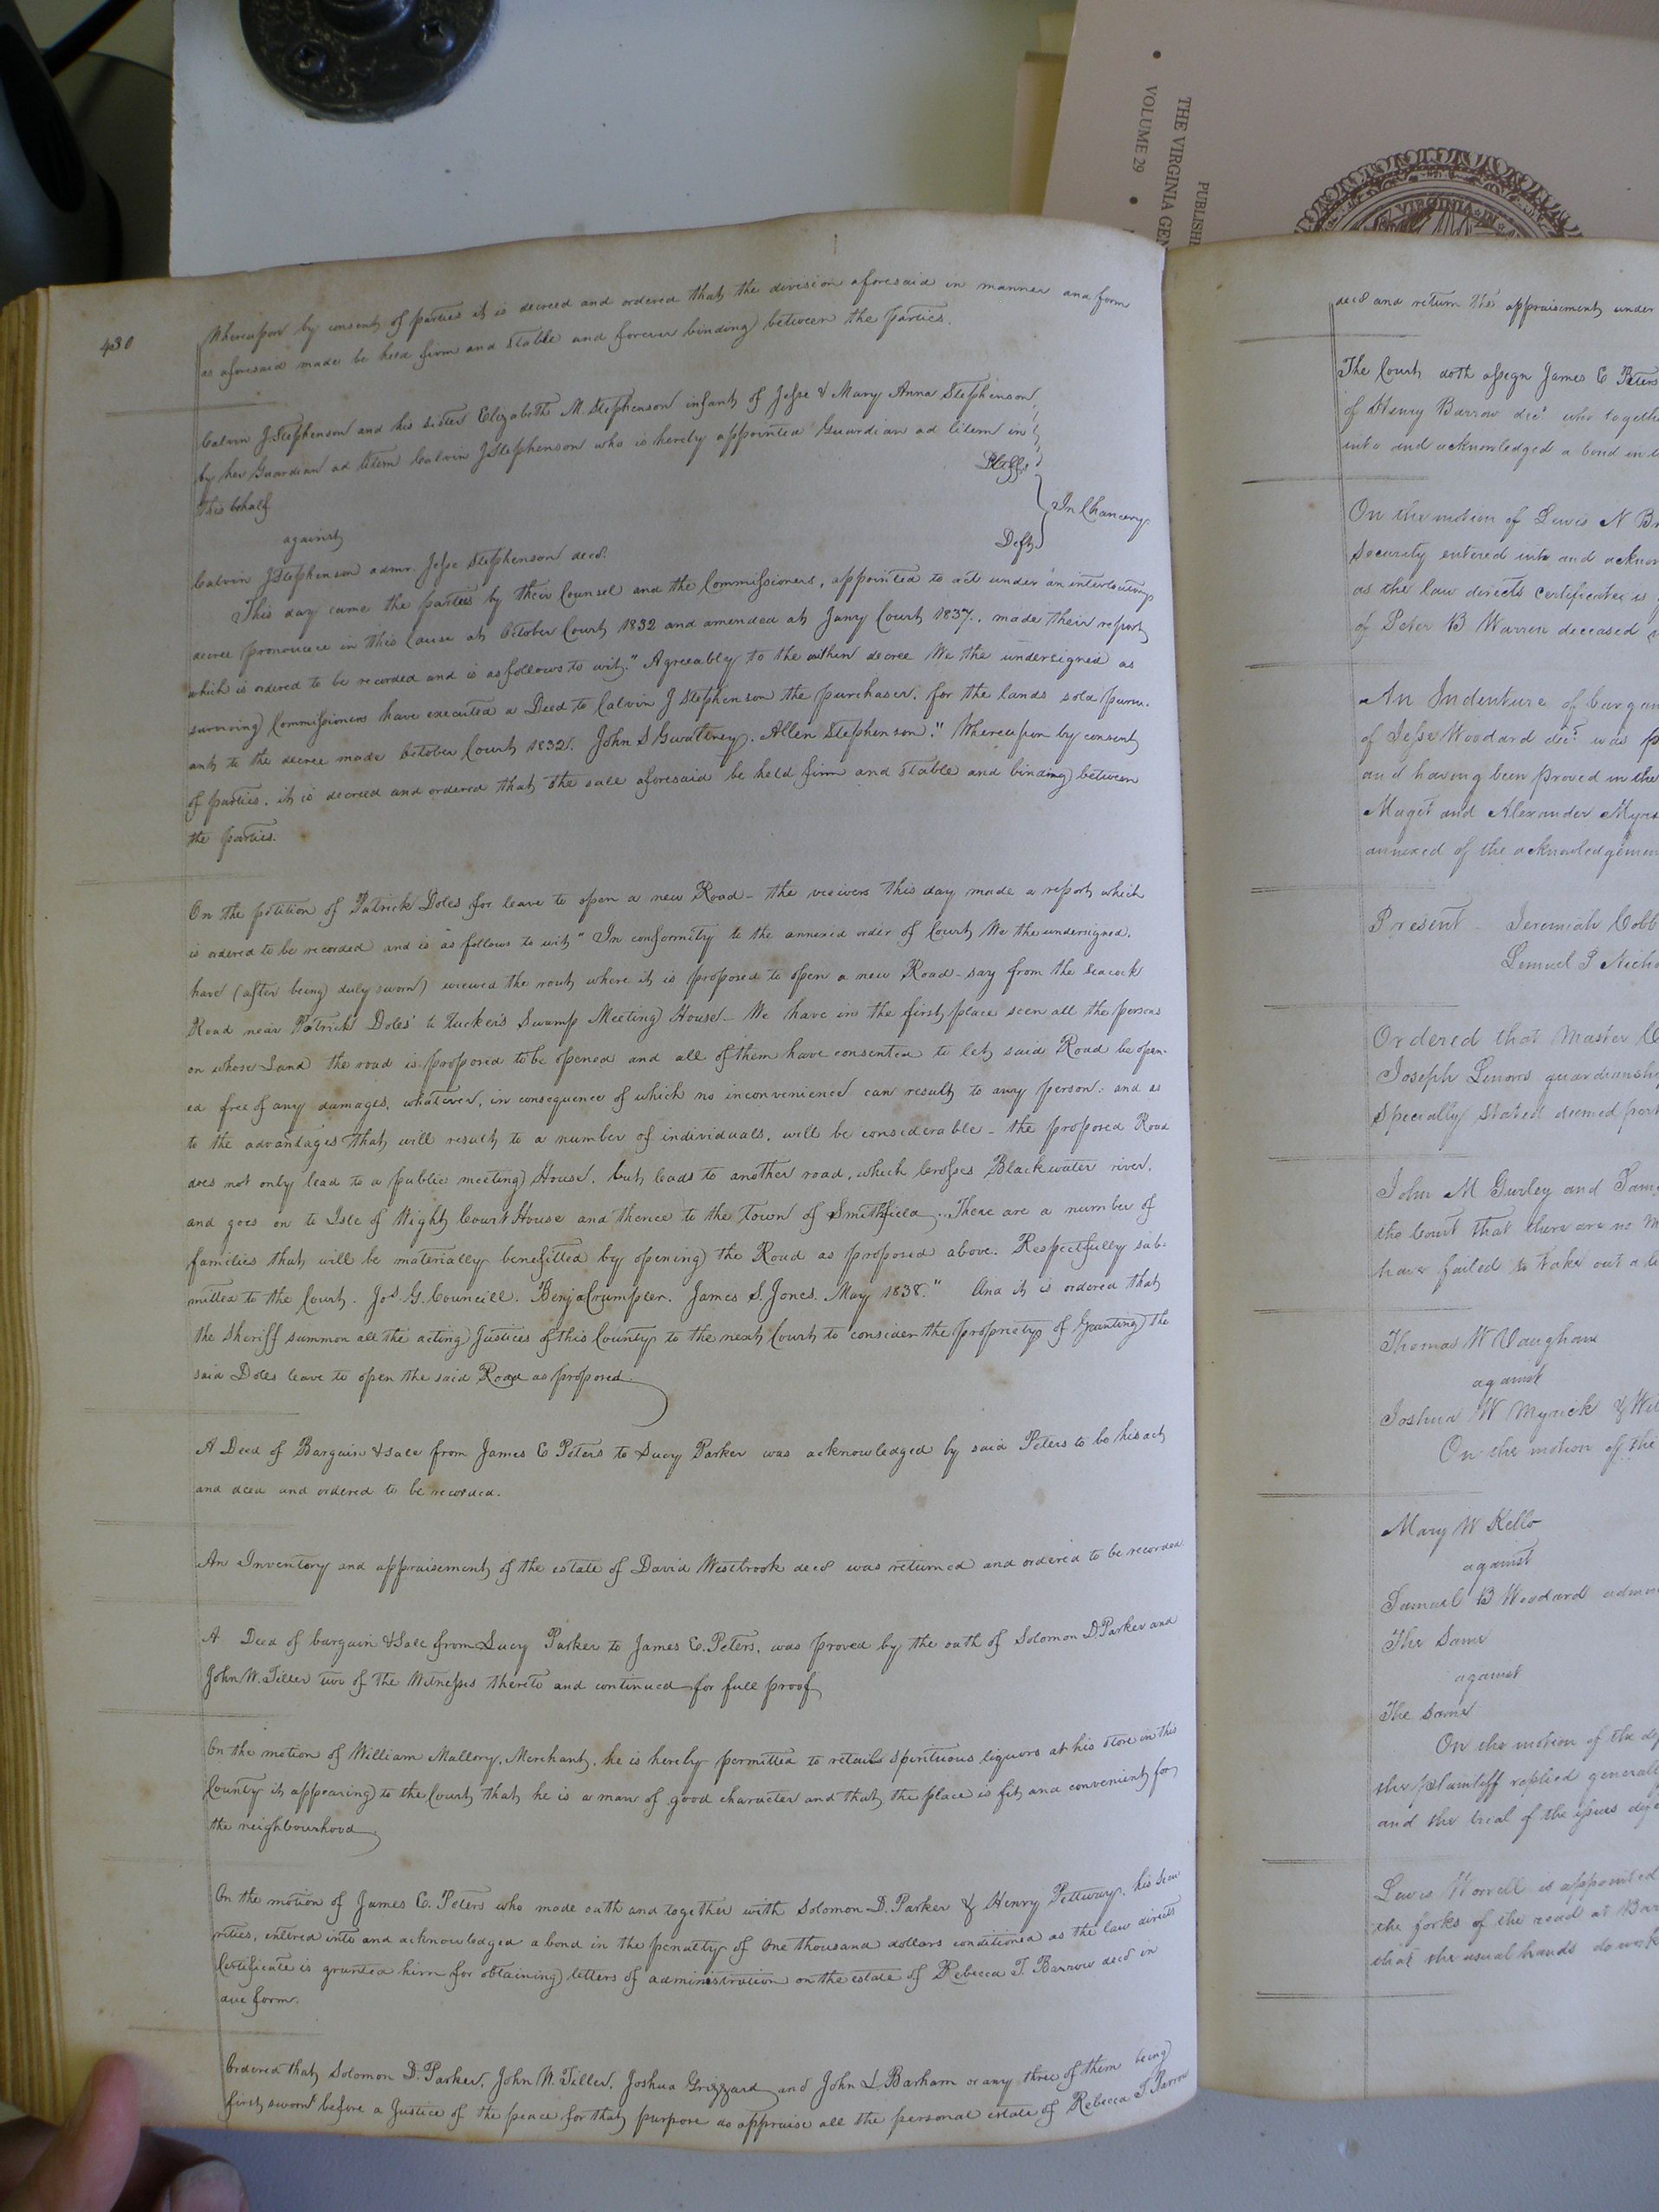 THE VIRGINIA GEN
VOLUME 29
PUBLISH
VIRGINIA IN
430
Whereupon by consent of parties it is decreed and ordered that the division aforesaid in manner and form
as aforesaid made be held firm and stable and forever binding between the parties.
Calvin J Stephenson and his sister Elizabeth M. Stephenson infant of Jesse & Mary Anna Stephenson
by her Guardian ad litem Calvin J Stephenson who is hereby appointed Guardian ad litem in
this behalf
Pltffs
against
In Chancery
Calvin J Stephenson admr. Jesse Stephenson decd.
Deft
This day came the parties by their Counsel and the Commissioners, appointed to act under an interlocutory
decree pronounce in this Cause at October Court 1832 and amended at Jany Court 1837., made their report
which is ordered to be recorded and is as follows to wit, "Agreeably to the within decree We the undersigned as
surviving Commissioners have executed a Deed to Calvin J Stephenson the purchaser, for the lands sold pursu-
ant to the decree made October Court 1832. John S Gwaltney. Allen Stephenson." Whereupon by consent
of parties, it is decreed and ordered that the sale aforesaid be held firm and stable and binding between
the parties.
On the petition of Patrick Doles for leave to open a new Road - the viewers this day made a report which
is ordered to be recorded and is as follows to wit "In conformity to the annexed order of Court We the undersigned,
have (after being duly sworn) viewed the rout where it is proposed to open a new Road - say from the Seacock
Road near Patrick Doles' to Tucker's Swamp Meeting House - We have in the first place seen all the persons
on whose Land the road is proposed to be opened and all of them have consented to let said Road be open-
ed free of any damages, whatever, in consequence of which no inconvenience can result to any person. and as
to the advantages that will result to a number of individuals, will be considerable - the proposed Road
does not only lead to a public meeting House, but leads to another road, which Crosses Blackwater river,
and goes on to Isle of Wight Court House and thence to the Town of Smithfield. There are a number of
families that will be materially benefitted by opening the Road as proposed above. Respectfully sub-
mitted to the Court. Jos G. Councill. Benja Crumpler. James S. Jones. May 1838." And it is ordered that
the Sheriff summon all the acting Justices of this County to the next Court to consider the propriety of Granting the
said Doles leave to open the said Road as proposed.
A Deed of Bargain & Sale from James E Peters to Lucy Parker was acknowledged by said Peters to be his act
and deed and ordered to be recorded.
An Inventory and appraisement of the estate of David Westbrook decd was returned and ordered to be recorded.
A Deed of bargain & Sale from Lucy Parker to James E. Peters, was proved by the oath of Solomon D. Parker and
John W. Tiller two of the Witnesses thereto and continued for full proof
On the motion of William Mallory, Merchant, he is hereby permitted to retail Sperituous liquors at his store in this
County it appearing to the Court that he is a man of good character and that the place is fit and convenient for
the neighbourhood
On the motion of James E. Peters who made oath and together with Solomon D. Parker & Henry Pettway, his secu
rities, entered into and acknowledged a bond in the penalty of One thousand dollars conditioned as the law directs
Certificate is granted him for obtaining letters of administration on the estate of Rebecca T. Barrow decd in
due form.
Ordered that Solomon D. Parker, John W. Tiller, Joshua Grizzard and John L. Barham or any three of them being
first sworn before a Justice of the peace for that purpose do appraise all the personal estate of Rebecca T. Barrow
decd and return this appraisement under
The Court doth assign James E Peters
of Henry Barrow decd who together
into and acknowledged a bond in
On the motion of Lewis N
Security entered into and acknow
as the law directs certificate is
of Peter B Warren deceased
An Indenture of bargain
of Jesse Woodard decd was
and having been proved in the
Maget and Alexander Myrick
annexed of the acknowledgement
Present Jeremiah Cobb
Lemuel P Nicho
Ordered that Master
Joseph guardianship
Specially stated deemed pert
John M Gurley and Sam
the Court that there are no
have failed to take out a li
Thomas W Vaughan
against
Joshua W Myrick & Wil
On the motion of the
Mary W Kello
against
Samuel B Woodard admr
The Same
against
The Same
On the motion of the def
the plaintiff replied generall
and the trial of the issues
Lewis Worrell is appointed
the forks of the road at Bar
that the usual hands do work